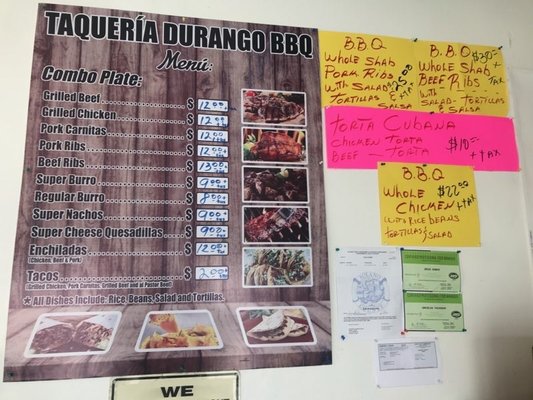 TAQUERÍA DURANGO BBQ
Menú:
Combo Plate:
Grilled Beef $ 12.00
Grilled Chicken $ 12.00
Pork Carnitas $ 12.00
Pork Ribs $ 12.00
Beef Ribs $ 13.00
Super Burro $ 9.00
Regular Burro $ 8.00
Super Nachos $ 9.00
Super Cheese Quesadillas $ 9.00
Enchiladas $ 12.00
(Chicken, Beef & Pork)
Tacos $ 2.00
(Grilled Chicken, Pork Carnitas, Grilled Beef and al Pastor Beef)
* All Dishes Include: Rice, Beans, Salad and Tortillas.
WE
B.B.Q
Whole Shab
Pork Ribs
with Salad $25.00
Tortillas & + tax
Salsa
B.B.Q $30.00
Whole Shab +
BEEF Ribs Tax
with
SALAD- Tortillas
& SALSA
Torta Cubana
Chicken Torta $10.00
BEEF Torta + tAX
B.B.Q
Whole $22.00
Chicken + tAX
with Rice beans
tortillas &
SALAD